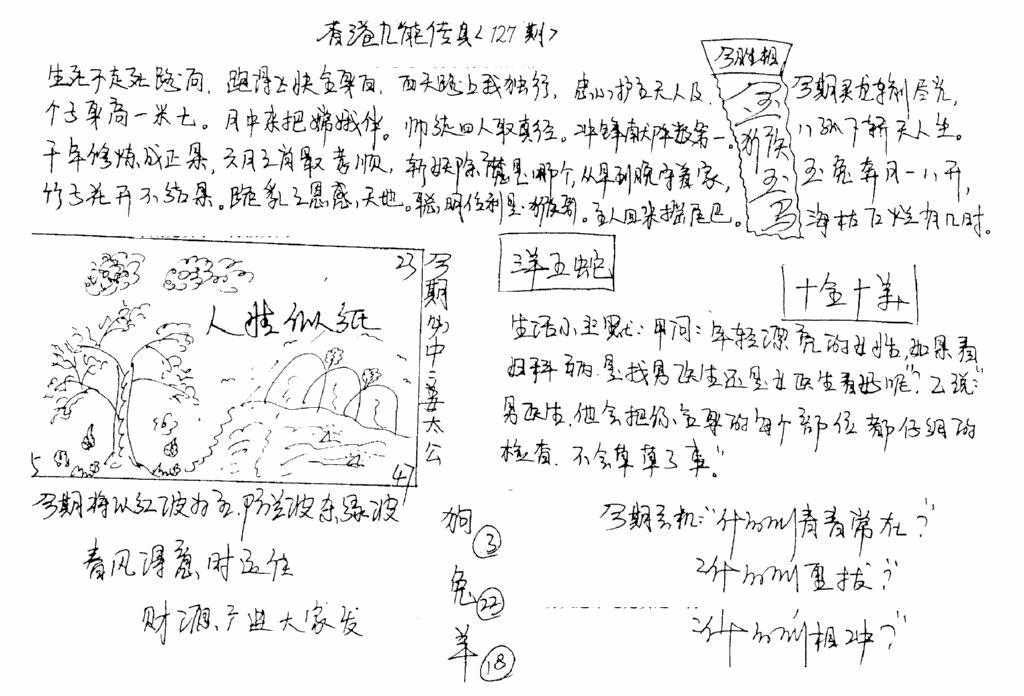 香港九龍传真<127期>
生死不走死路向，跑得比快全身白，西天路上我独行，忠心护主天人及，
个子身高一米七。月中来把嫦娥伴。师徒四人取真经。冲锋献阵数第一。
千年修炼成正果，六月生肖最孝顺，斩妖除魔是哪个，从早到晚守着家，
竹子花开不结果。跪乳之恩感天地。聪明伶利是猴哥。主人回来摇尾巴。
今期
玉
猴
玉
今期买
尽光，
八
下轿天人生。
玉兔奔月一八开，
海枯石烂有几时。
23
人性似纸
5
47
今期必中：姜太公
三羊五蛇
十全十羊
生活小幽默：甲问：年轻漂亮的女性，如果看
妇科病，是找男医生还是女医生看好呢"？乙说："
男医生，他会把你全身的每个部位都仔细的
检查，不会草草了事。"
今期将以红波为主，防兰波杀绿波
春风得意时运佳
财源产业大家发
狗③
兔㉒
羊⑱
今期玄机："什么叫青春常在？"
2什么叫
拔？"
三什么叫相冲？"